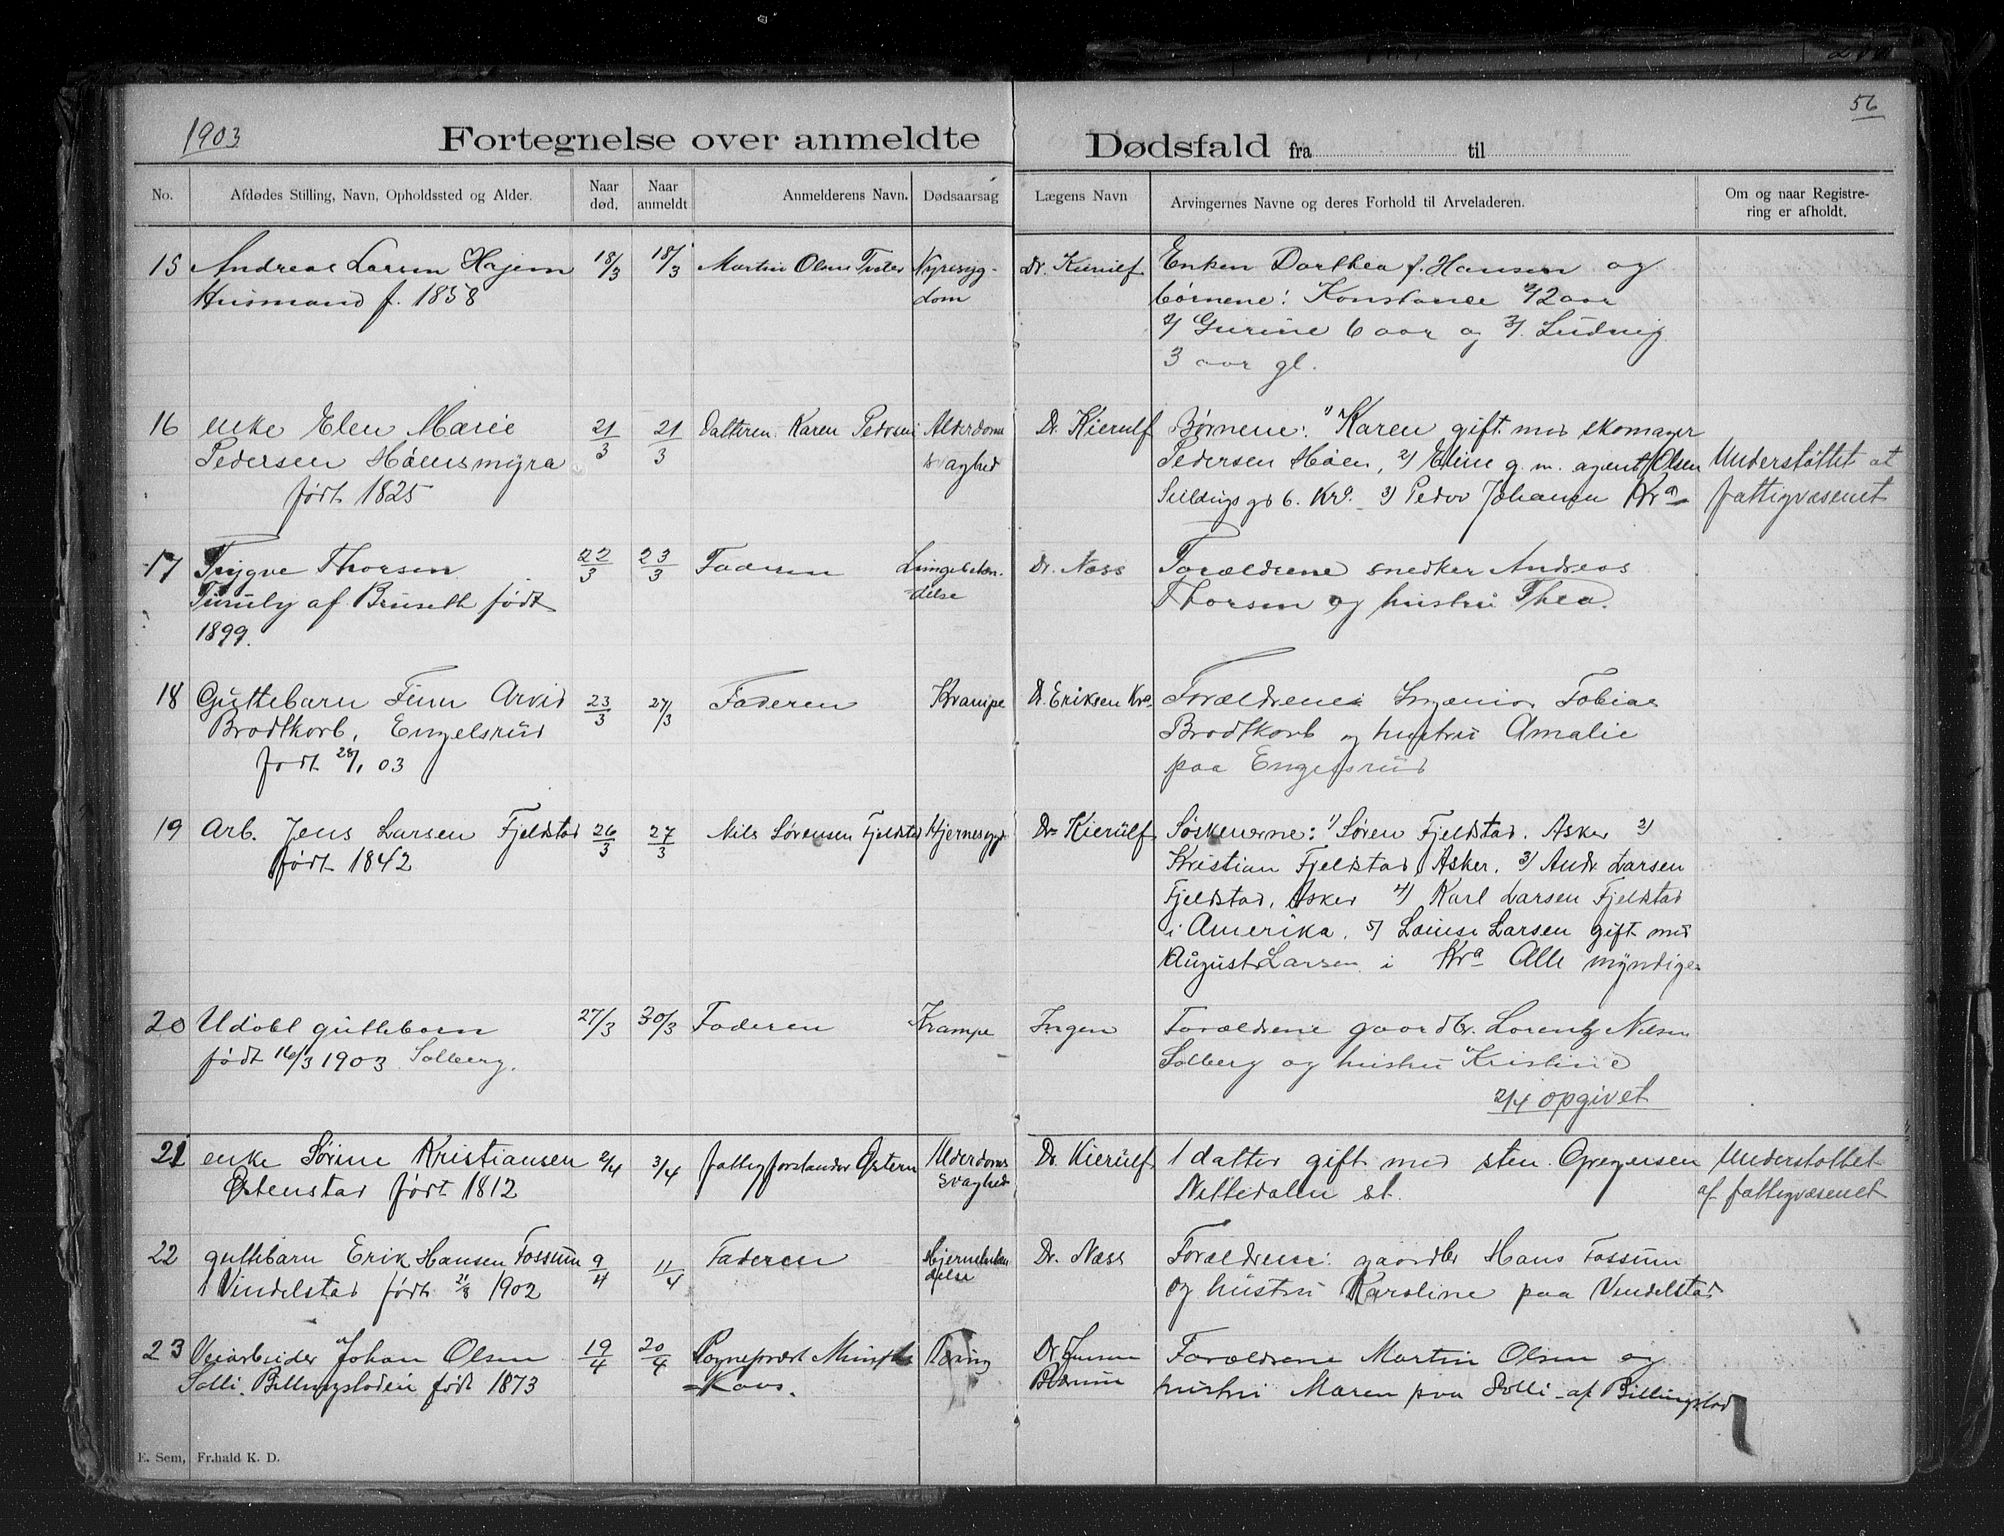 56
1903
Fortegnelse over anmeldte Dødsfald fra til
No. Afdødes Stilling, Navn, Opholdssted og Alder. Naar død. Naar anmeldt Anmelderens Navn. Dødsaarsag Lægens Navn Arvingernes Navne og deres Forhold til Arveladeren. Om og naar Registrering er afholdt.
15 Andreas Larsen Hajem 18/3 18/3 Martin Olsen Nyresyg- Dr. Kierulf Enken Dorthea f. Hansen og
Husmand f. 1858 dom børnene: Konstance 12 aar
2/ Gurine 6 aar og 3/. Ludvig
3 aar gl.
16 enke Elen Marie 21/3 21/3 Datteren Karen Pedersen Alderdoms Dr. Kierulf Børnene: 1/ Karen gift med skomager
Pedersen Høensmyra svaghed Pedersen Høen, 2/ Eline g. m. agent Olsen Understøttet af
født 1825 6. Kra. 3/ Peder Johansen Kra fattigvæsenet
17 Trygve Thorsen 22/3 23/3 Faderen Lungebetæn- Dr. Næss Forældrene snedker Andreas
af Bruseth født delse Thorsen og hustru Thea.
1899.
18 Guttebarn Finn Arvid 23/3 27/3 Faderen Krampe D. Eriksen Kra. Forældrene Ingeniør Tobias
Brodtkorb, Engelsrud Brodtkorb og hustru Amalie
født 28/1 03 paa Engelsrud
19 Arb. Jens Larsen Fjeldstad 26/3 27/3 Nils Sørensen Fjeldstad Hjernesygd Dr. Kierulf Søskenerne: 1/ Søren Fjeldstad. Asker 2/
født 1842 Kristian Fjeldstad, Asker. 3/ Andr. Larsen
Fjeldstad, Asker 4/ Karl Larsen Fjeldstad
i Amerika. 5/ Louise Larsen gift med
August Larsen i Kra Alle myndige
20 Udøbt guttebarn 27/3 30/3 Faderen Krampe Ingen Forældrene gaardbr. Lorentz Nilsen
født 16/3 1903 Solberg. Solberg og hustru Kristine
2/4 opgivet
21 enke Sørine Kristiansen 2/4 3/4 fattigforstander Østern Alderdoms Dr. Kierulf 1 datter gift med sten. Gregersen Understøttet
Østenstad født 1812 svaghed Nittedalen st. af fattigvæsenet
22 guttebarn Erik Hansen Fossum 9/4 11/4 Faderen Hjernebetæn Dr. Næss Forældrene: gaardbr Hans Fossum
Vindelstad født 21/8 1902 delse og hustru Karoline paa Vindelstad
23 Veiarbeider Johan Olsen 19/4 20/4 Tæring Dr Jensen Forældrene Martin Olsen og
Solli. født 1873 Bærum hustru Maren paa Solli af Billingstad
E. Sem, Fr.hald K. D.